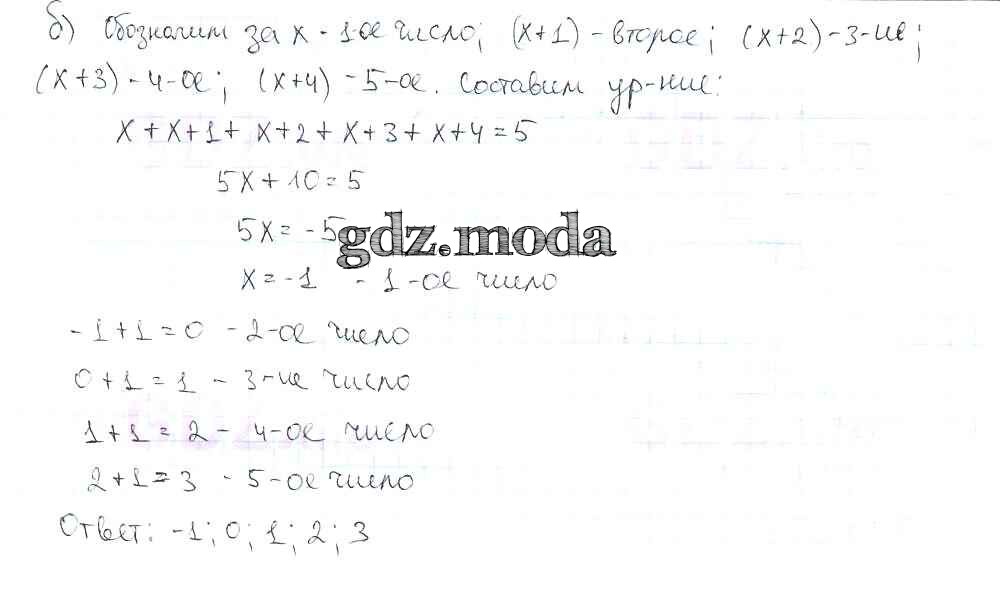 б) Обозначим за x - 1-ое число; (x+1) - второе; (x+2) - 3-ие;
(x+3) - 4-ое; (x+4) - 5-ое. Составим ур-ние:
x + x+1 + x+2 + x+3 + x+4 = 5
5x + 10 = 5
5x = -5
gdz.moda
x = -1 - 1-ое число
-1+1=0 - 2-ое число
0+1=1 - 3-ие число
1+1=2 - 4-ое число
2+1=3 - 5-ое число
Ответ: -1; 0; 1; 2; 3